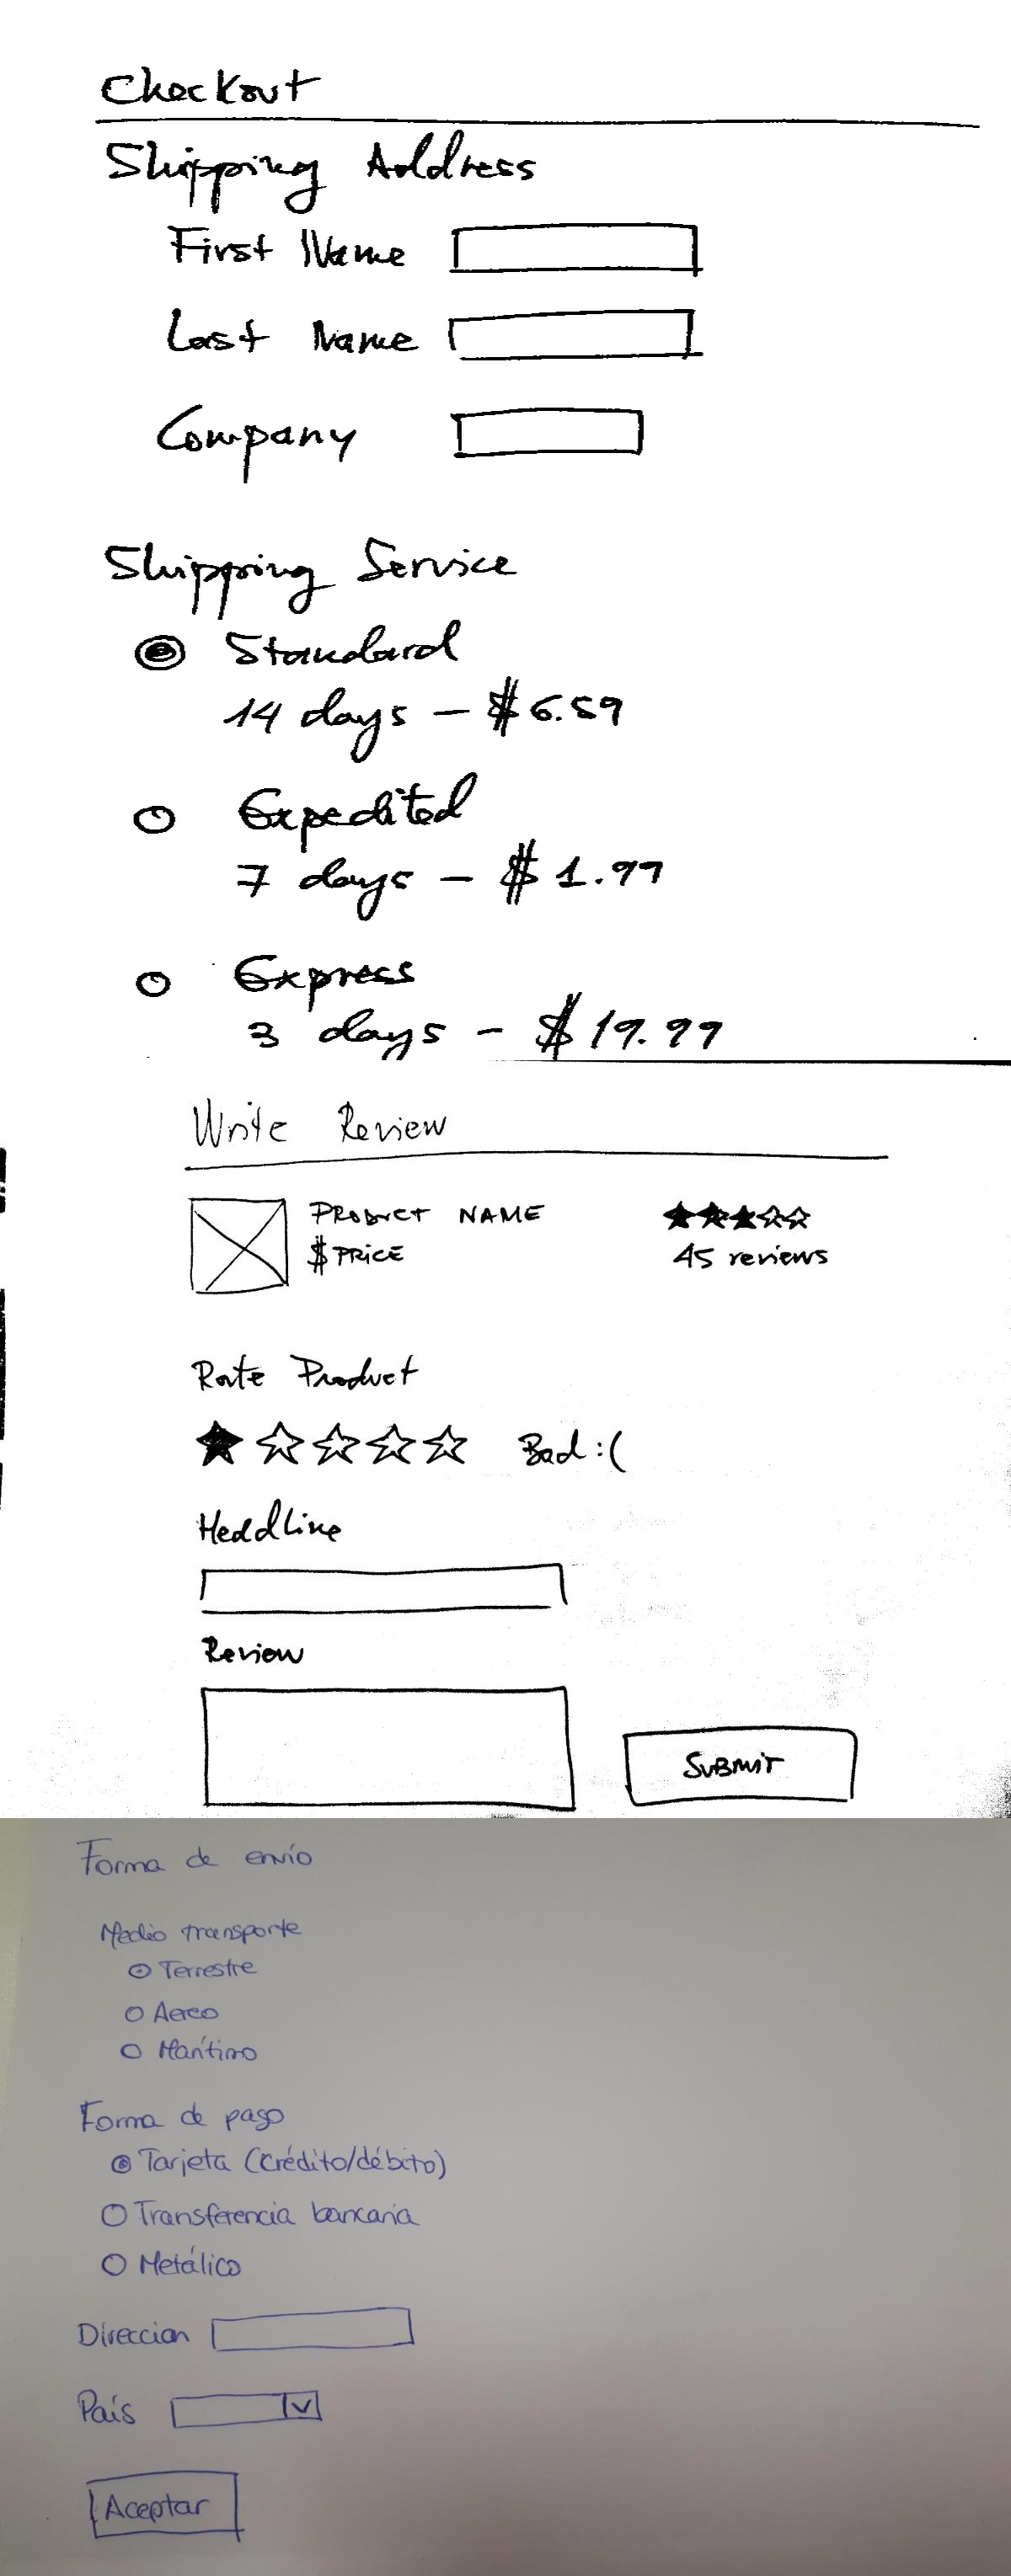 Checkout
Shipping Address
First Name
Last Name
Company
Shipping Service
Standard
14 days – $6.59
Expedited
7 days – $1.99
Express
3 days – $19.99
Write Review
PRODUCT NAME
$ PRICE
45 reviews
Rate Product
Bad :(
Headline
Review
SUBMIT
Forma de envío
Medio transporte
Terrestre
Aereo
Marítimo
Forma de pago
Tarjeta (crédito/débito)
Transferencia bancaria
Metálico
Direccion
País
Aceptar